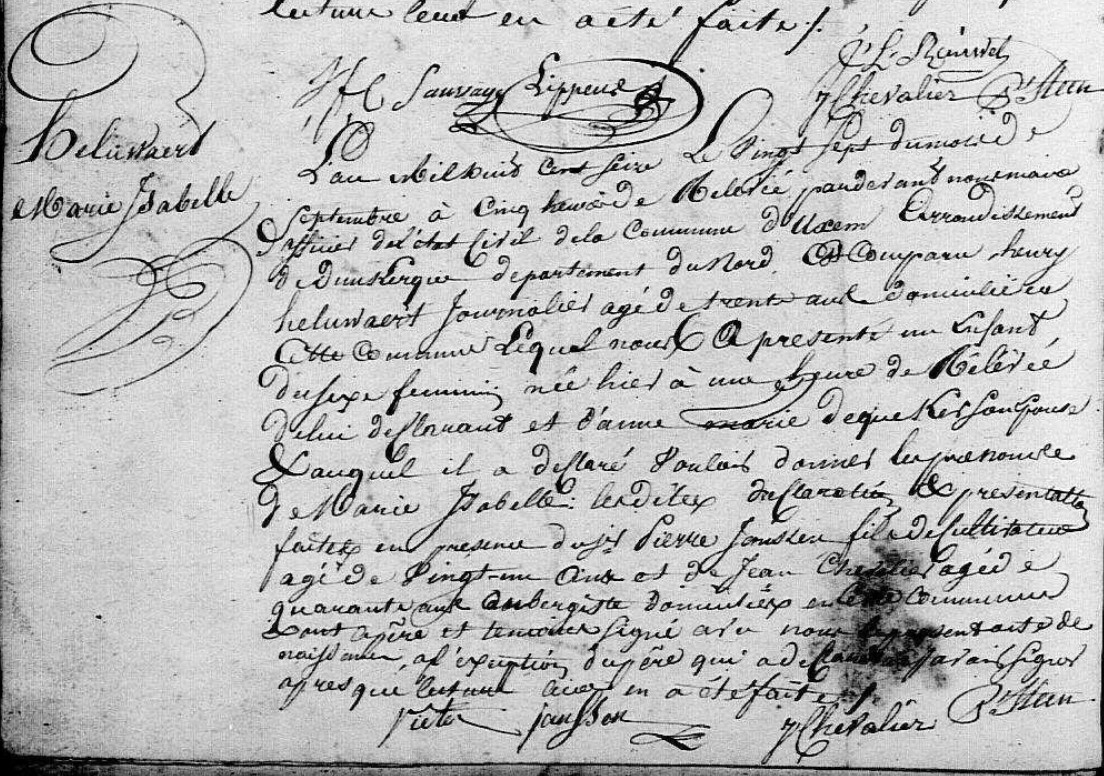 lecture leur en a été faite /.
Sauvage Lippens
J Chevalier P. Steen
heluwaert
Marie Isabelle
L'an Mil huit cent seize Le Vingt Sept du mois de
Septembre à Cinq heures de Relevée pardevant nous maire
officier de l'état Civil de la Commune d'Uxem Arrondissement
de Dunkerque departement du Nord, Est Comparu henry
heluwaert Journalier agé de trente ans domicilié en
Cette Commune Lequel nous A presenté un Enfant
du sexe feminin née hier à une heure de Rélévée
de lui declarant et d'anne marie dequeker son Epouse
Et auquel il a declaré Vouloir donner les prenoms
de Marie Isabelle: lesdites declaration & presentation
faites en presence du Sr Pierre Janssen fils de Cultivateur
agé de Vingt-un Ans et de Jean Chevalier agé de
quarante ans Aubergiste domiciliés en Cette Commune
& ont père et temoins signé avec nous le present acte de
naissance, a l'exception du père qui a declaré ne savoir signer
apres que lecture leur en a été faite /.
Pieter Janssen J Chevalier P. Steen